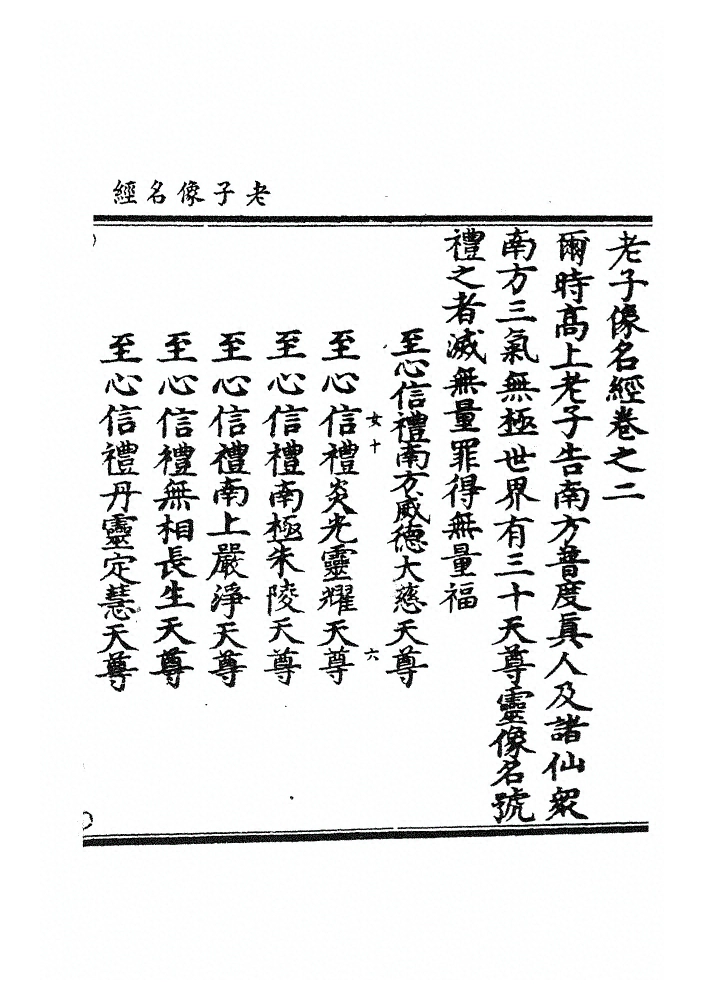 老子像名經
老子像名經卷之二
爾時高上老子告南方普度眞人及諸仙衆
南方三氣無極世界有三十天尊靈像名號
禮之者滅無量罪得無量福
至心信禮南方威德大慈天尊
女十 六
至心信禮炎光靈耀天尊
至心信禮南極朱陵天尊
至心信禮南上嚴淨天尊
至心信禮無相長生天尊
至心信禮丹靈定慧天尊